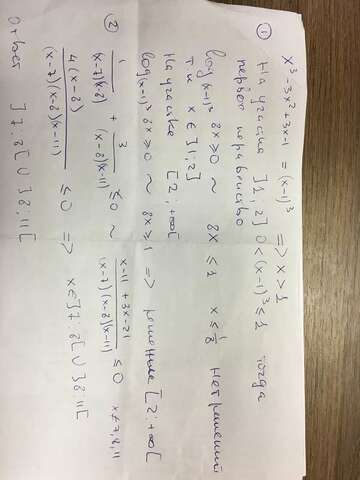 ① x³-3x²+3x-1 = (x-1)³ => x>1
На участке ]1;2] 0<(x-1)³≤1 тогда
первое неравенство
log(x-1)³ 8x≥0 ~ 8x≤1 x≤1/8 нет решений
т.к. x∈]1;2]
На участке [2;+∞[
log(x-1)³ 8x≥0 ~ 8x≥1 => решение [2;+∞[
② 1/(x-7)(x-8) + 3/(x-8)(x-11) ≤0 ~ x-11+3x-21/(x-7)(x-8)(x-11) ≤0 x≠7,8,11
4(x-8)/(x-7)(x-8)(x-11) ≤0 => x∈]7;8[∪]8;11[
Ответ ]7;8[∪]8;11[